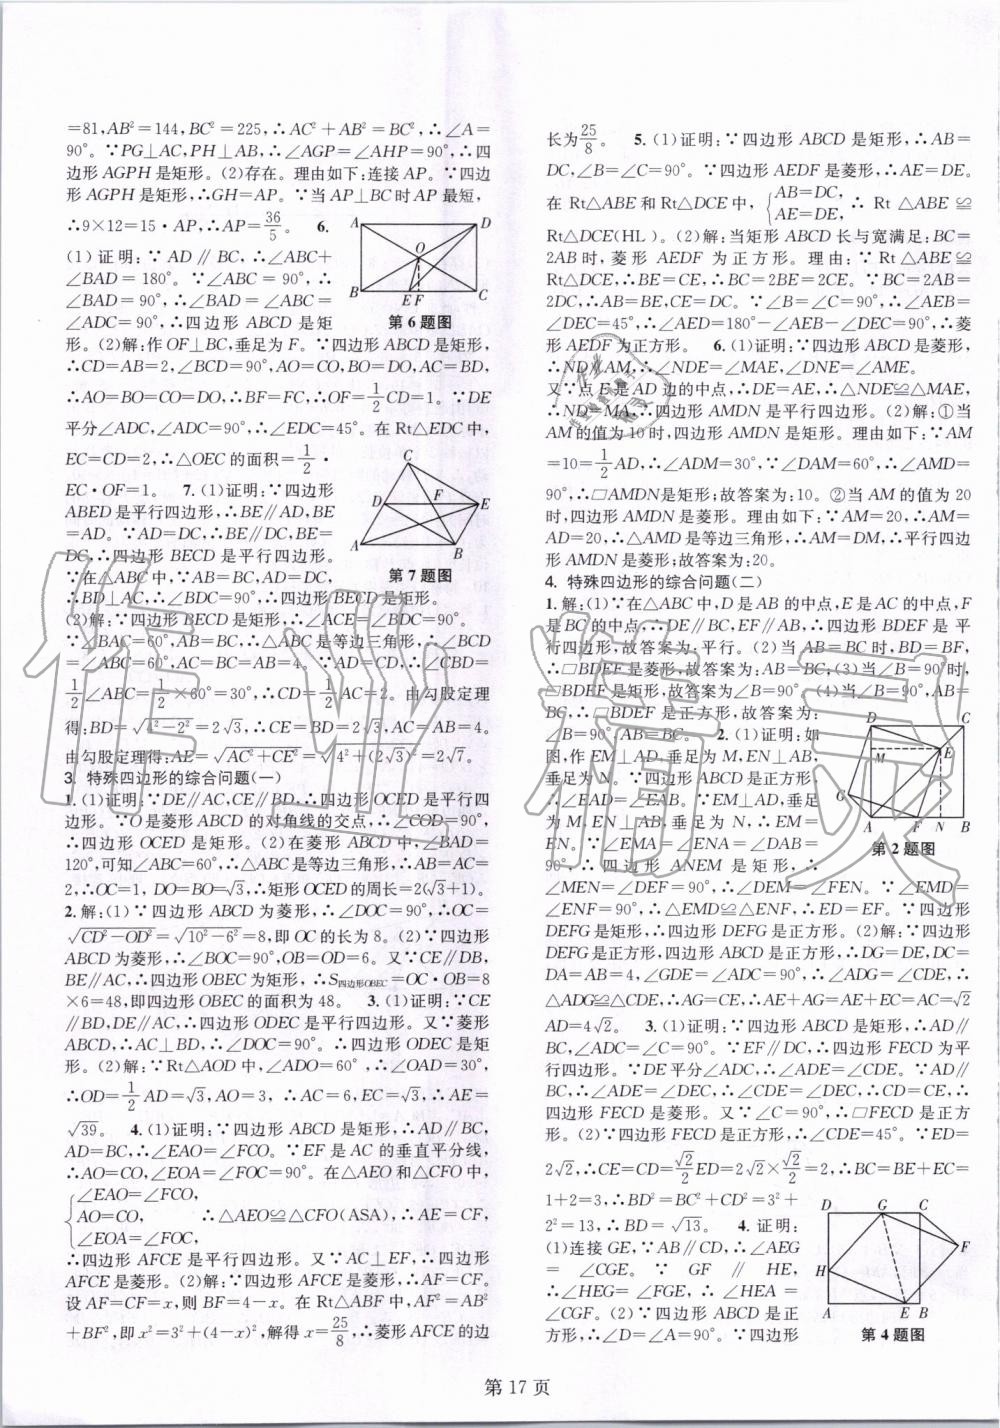 =81,AB²=144,BC²=225,∴AC²+AB²=BC²,∴∠A=
90°。∵PG⊥AC,PH⊥AB,∴∠AGP=∠AHP=90°,∴四
边形AGPH是矩形。(2)存在。理由如下:连接AP。∵四边
形AGPH是矩形,∴GH=AP。∵当AP⊥BC时AP最短,
∴9×12=15·AP,∴AP=36/5。 6.
(1)证明:∵AD∥BC,∴∠ABC+
∠BAD=180°。∵∠ABC=90°,
∴∠BAD=90°,∴∠BAD=∠ABC=
∠ADC=90°,∴四边形ABCD是矩
形。(2)解:作OF⊥BC,垂足为F。∵四边形ABCD是矩形,
A D O B E F C
第6题图
∴CD=AB=2,∠BCD=90°,AO=CO,BO=DO,AC=BD,
∴AO=BO=CO=DO,∴BF=FC,∴OF=1/2CD=1。∵DE
平分∠ADC,∠ADC=90°,∴∠EDC=45°。在Rt△EDC中,
EC=CD=2,∴△OEC的面积=1/2·
EC·OF=1。 7.(1)证明:∵四边形
ABED是平行四边形,∴BE∥AD,BE
=AD。∵AD=DC,∴BE∥DC,BE=
DC,∴四边形BECD是平行四边形。
∵在△ABC中,AB=BC,AD=DC,
∴BD⊥AC,∴∠BDC=90°,∴四边形BECD是矩形。
C D F E A B
第7题图
(2)解:∵四边形BECD是矩形,∴∠ACE=∠BDC=90°。
∵∠BAC=60°,AB=BC,∴△ABC是等边三角形,∴∠BCD
=∠ABC=60°,AC=BC=AB=4。∵AD=CD,∴∠CBD=
1/2∠ABC=1/2×60°=30°,∴CD=1/2AC=2。由勾股定理
得:BD=√(4²−2²)=2√3,∴CE=BD=2√3,AC=AB=4。
由勾股定理得:AE=√(AC²+CE²)=√(4²+(2√3)²)=2√7。
3. 特殊四边形的综合问题(一)
1.(1)证明:∵DE∥AC,CE∥BD,∴四边形OCED是平行四
边形。∵O是菱形ABCD的对角线的交点,∴∠COD=90°,
∴四边形OCED是矩形。(2)在菱形ABCD中,∵∠BAD=
120°,可知∠ABC=60°,∴△ABC是等边三角形,∴AC=AB=
2,∴OC=1,DO=BO=√3,∴矩形OCED的周长=2(√3+1)。
2.解:(1)∵四边形ABCD为菱形,∴∠DOC=90°,∴OC=
√(CD²−OD²)=√(10²−6²)=8,即OC的长为8。(2)∵四边形
ABCD为菱形,∴∠BOC=90°,OB=OD=6。又∵CE∥DB,
BE∥AC,∴四边形OBEC为矩形,∴S四边形OBEC=OC·OB=8
×6=48,即四边形OBEC的面积为48。 3.(1)证明:∵CE
∥BD,DE∥AC,∴四边形ODEC是平行四边形。又∵菱形
ABCD,∴AC⊥BD,∴∠DOC=90°。∴四边形ODEC是矩
形。(2)解:∵Rt△AOD中,∠ADO=60°,∴∠OAD=30°,
∴OD=1/2AD=√3,AO=3,∴AC=6,EC=√3,∴AE=
√39。 4.(1)证明:∵四边形ABCD是矩形,∴AD∥BC,
AD=BC,∴∠EAO=∠FCO。∵EF是AC的垂直平分线,
∴AO=CO,∠EOA=∠FOC=90°。在△AEO和△CFO中,
{∠EAO=∠FCO,
AO=CO, ∴△AEO≌△CFO(ASA),∴AE=CF,
∠EOA=∠FOC,
∴四边形AFCE是平行四边形。又∵AC⊥EF,∴四边形
AFCE是菱形。(2)解:∵四边形AFCE是菱形,∴AF=CF。
设AF=CF=x,则BF=4−x。在Rt△ABF中,AF²=AB²
+BF²,即x²=3²+(4−x)²,解得x=25/8,∴菱形AFCE的边
长为25/8。 5.(1)证明:∵四边形ABCD是矩形,∴AB=
DC,∠B=∠C=90°。∵四边形AEDF是菱形,∴AE=DE。
在Rt△ABE和Rt△DCE中,{AB=DC, AE=DE,∴Rt△ABE≌
Rt△DCE(HL)。(2)解:当矩形ABCD长与宽满足:BC=
2AB时,菱形AEDF为正方形。理由:∵Rt△ABE≌
Rt△DCE,∴BE=CE,∴BC=2BE=2CE。∵BC=2AB=
2DC,∴AB=BE,EC=DC。∵∠B=∠C=90°,∴∠AEB=
∠DEC=45°,∴∠AED=180°−∠AEB−∠DEC=90°,∴菱
形AEDF为正方形。 6.(1)证明:∵四边形ABCD是菱形,
∴ND∥AM,∴∠NDE=∠MAE,∠DNE=∠AME.
又∵点E是AD边的中点,∴DE=AE,∴△NDE≌△MAE,
∴ND=MA,∴四边形AMDN是平行四边形。(2)解:①当
AM的值为10时,四边形AMDN是矩形。理由如下:∵AM
=10=1/2AD,∴∠ADM=30°。∵∠DAM=60°,∴∠AMD=
90°,∴▱AMDN是矩形;故答案为:10。②当AM的值为20
时,四边形AMDN是菱形。理由如下:∵AM=20,∴AM=
AD=20,∴△AMD是等边三角形,∴AM=DM,∴平行四边
形AMDN是菱形;故答案为:20。
4. 特殊四边形的综合问题(二)
1.解:(1)∵在△ABC中,D是AB的中点,E是AC的中点,F
是BC的中点,∴DE∥BC,EF∥AB,∴四边形BDEF是平
行四边形,故答案为:平行。(2)当AB=BC时,BD=BF,
∴▱BDEF是菱形,故答案为:AB=BC;(3)当∠B=90°时,
▱BDEF是矩形,故答案为∠B=90°。(4)当∠B=90°,AB=
BC时,▱BDEF是正方形,故答案为:
∠B=90°,AB=BC。 2.(1)证明:如
图,作EM⊥AD,垂足为M,EN⊥AB,
垂足为N。∵四边形ABCD是正方形
∴∠EAD=∠EAB。∵EM⊥AD,垂足
为M,EN⊥AB,垂足为N,∴EM=
EN。∵∠EMA=∠ENA=∠DAB=
90°,∴四边形ANEM是矩形,∴
D C M E G A F N B
第2题图
∠MEN=∠DEF=90°,∴∠DEM=∠FEN。∵∠EMD=
∠ENF=90°,∴△EMD≌△ENF,∴ED=EF。∵四边形
DEFG是矩形,∴四边形DEFG是正方形。(2)解:∵四边形
DEFG是正方形,四边形ABCD是正方形,∴DG=DE,DC=
DA=AB=4,∠GDE=∠ADC=90°,∴∠ADG=∠CDE,∴
△ADG≌△CDE,∴AG=CE,∴AE+AG=AE+EC=AC=√2
AD=4√2。 3.(1)证明:∵四边形ABCD是矩形,∴AD∥
BC,∠ADC=∠C=90°。∵EF∥DC,∴四边形FECD为平
行四边形。∵DE平分∠ADC,∴∠ADE=∠CDE。∵AD∥
BC,∴∠ADE=∠DEC,∴∠CDE=∠DEC,∴CD=CE,∴
四边形FECD是菱形。又∵∠C=90°,∴▱FECD是正方
形。(2)∵四边形FECD是正方形,∴∠CDE=45°。∵ED=
2√2,∴CE=CD=√2/2ED=2√2×√2/2=2,∴BC=BE+EC=
1+2=3,∴BD²=BC²+CD²=3²+
2²=13,∴BD=√13。 4.证明:
(1)连接GE,∵AB∥CD,∴∠AEG
=∠CGE。∵GF∥HE,
∴∠HEG=∠FGE,∴∠HEA=
∠CGF。(2)∵四边形ABCD是正
方形,∴∠D=∠A=90°。∵四边形
D G C F H A E B
第4题图
第17页
作业精灵